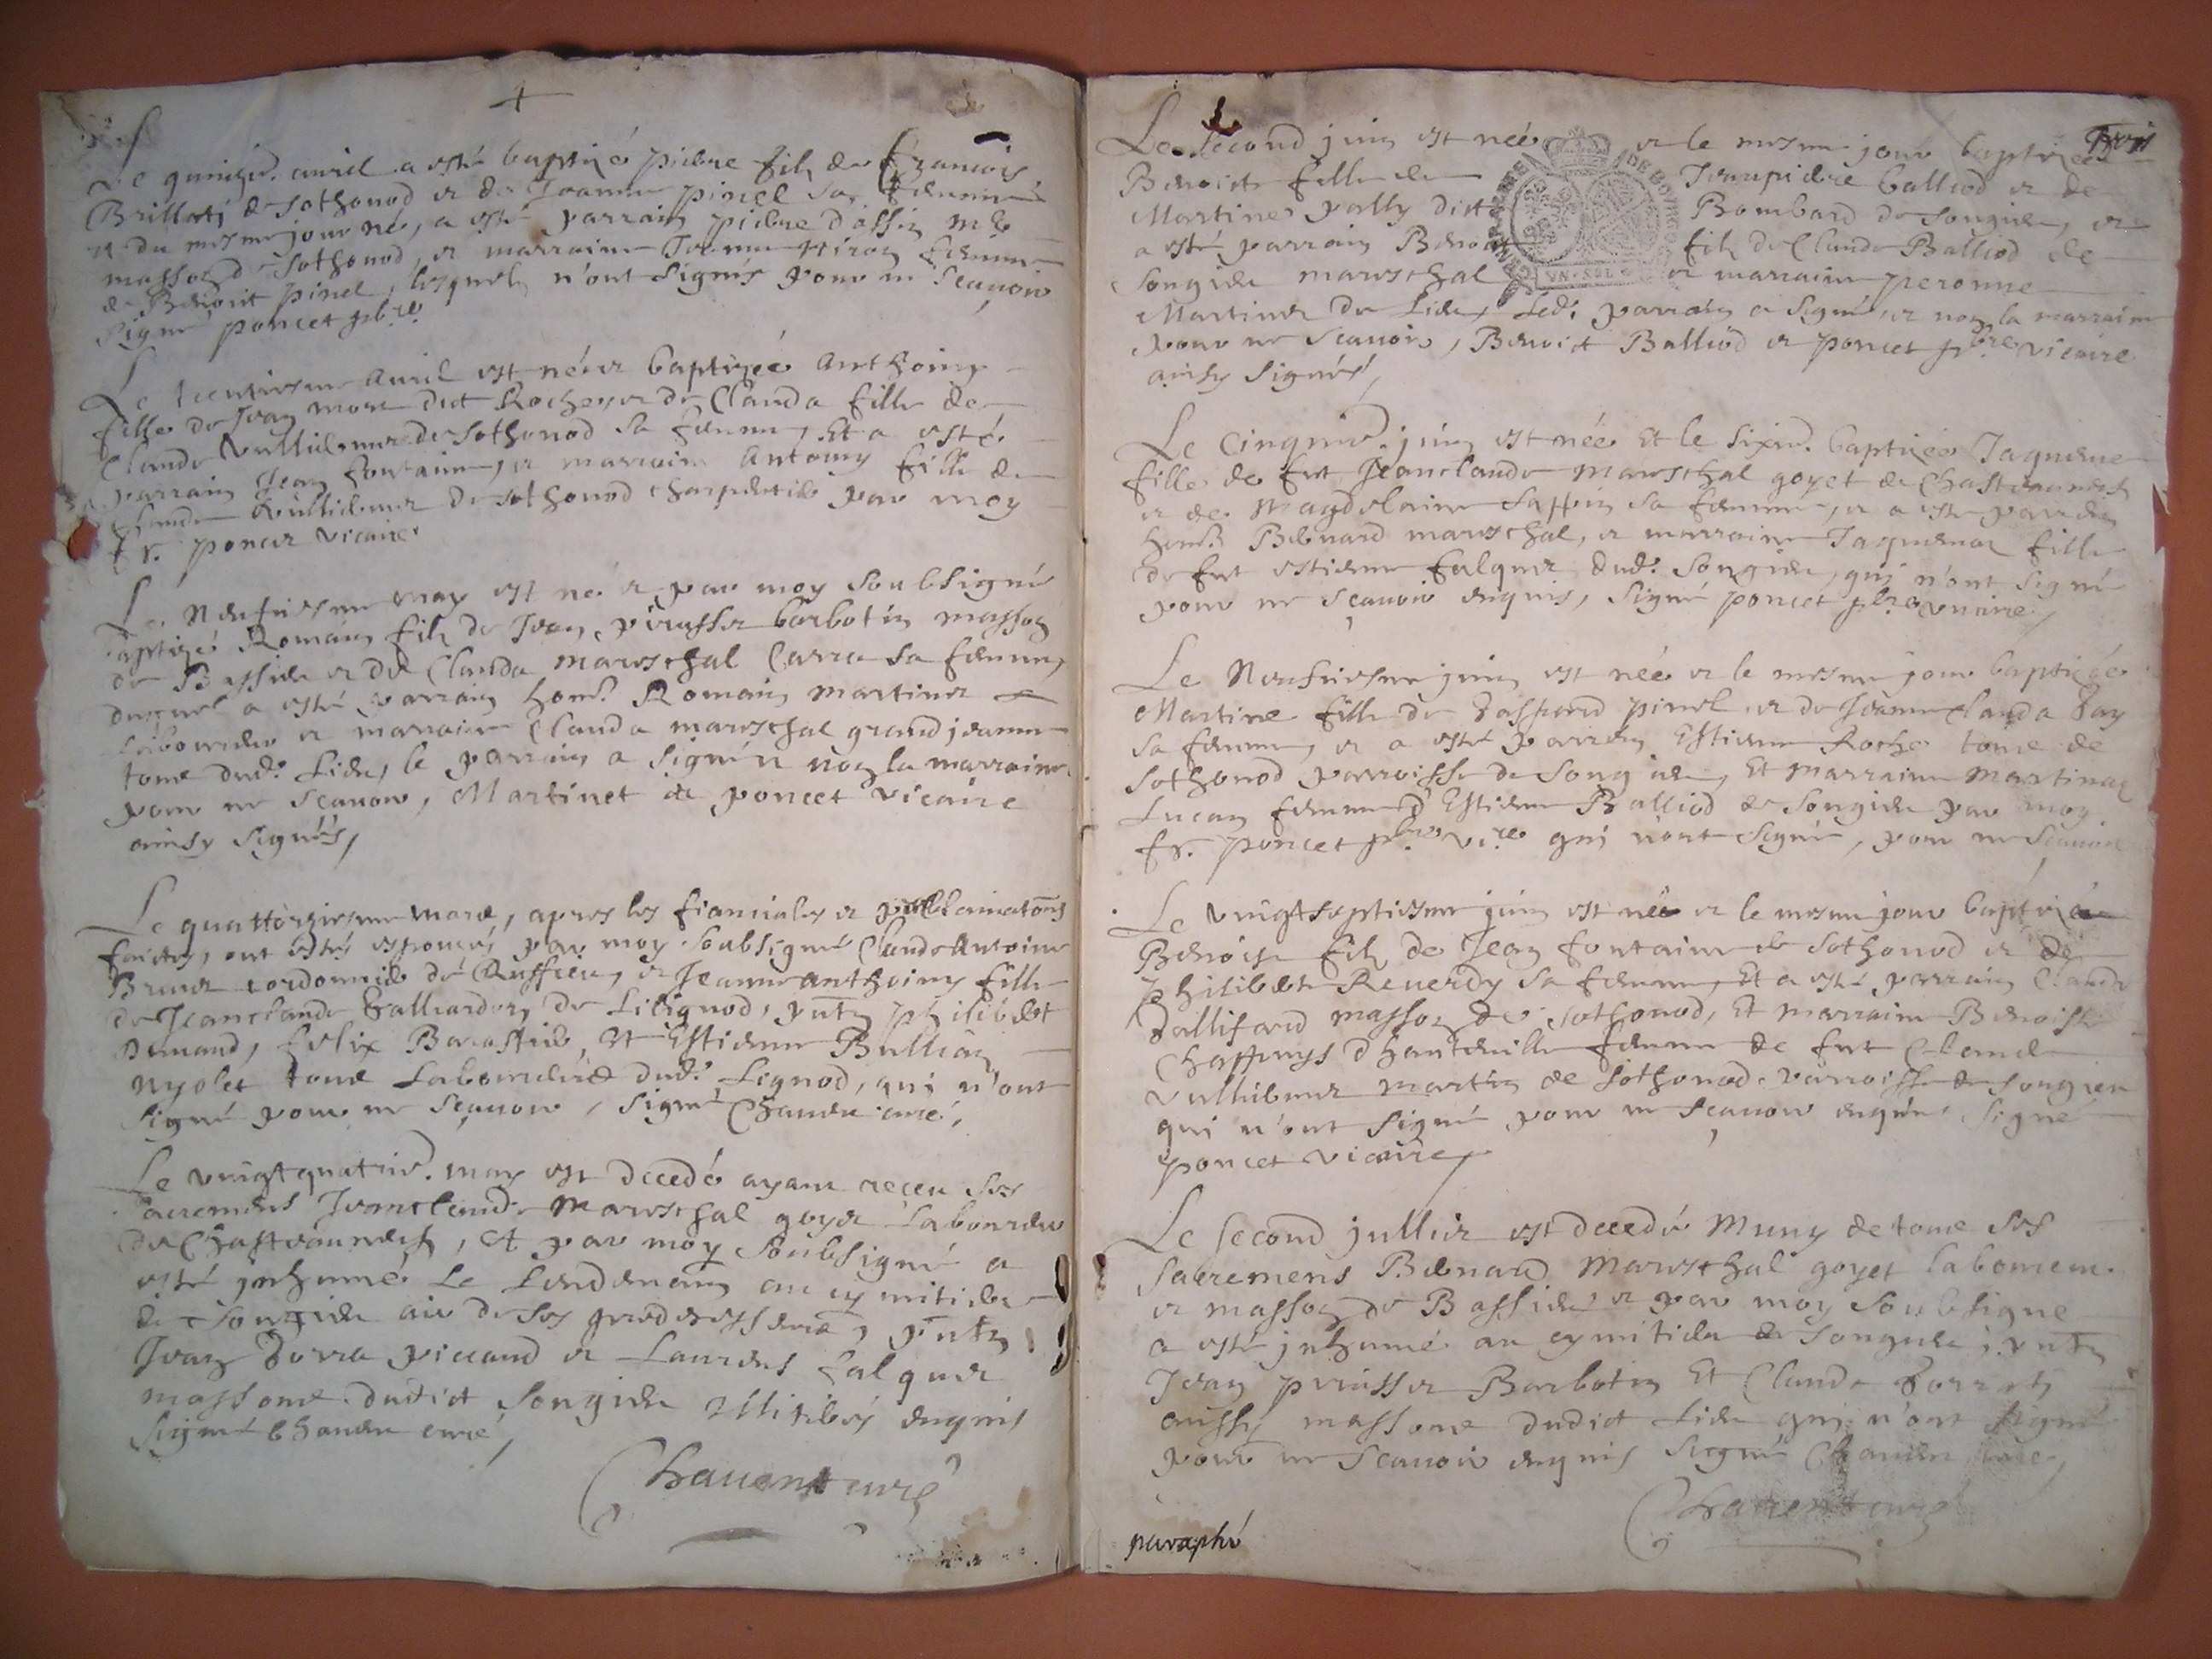 Le quinziē. auril a esté baptizé pierre fils de francois
Brillat de Sothonod et de Jeanne pinel sa femme
et du mesme jour né, a esté parrain pierre dassin
masson de Sothonod, et marraine Jeanne femme
de Benoict pinel, lesquels n'ont signés pour ne scauoir
signé poncet pbre
Le trentiesme Auril est née et baptizée Anthoine
fille de Jean more dict Rochey et de Clauda fille de
Claude Vulliermet de Sothonod sa femme, Et a esté
parrain Jean fontaine, et marraine Antoine fille de
Claude Vulliermet de Sothonod charpentier par moy
fr. poncet vicaire
Le Neufuiesme may est né et par moy soubsigné
baptizé Romain fils de Jean perrasset barbotin masson
de Bassieu et de Clauda mareschal Carra sa femme,
duquel a esté parrain hon. Romain martinet
laboureur et marraine Clauda mareschal grand jeanne
tous dud. lieu, le parrain a signé et non la marraine
pour ne scauoir, Martinet et poncet vicaire
ainsy signés,
Le quattorziesme mars, apres les fiancialles et publications
faictes, ont estés espousés par moy soubsigné Claude Antoine
Brunet cordonnier de Ruffieu, et Jeanne anthoine fille
de Jeanclaude Galliardon de Lilignod, pnts philibert
Demand, felix Barastier, et Estienne Bullian
Nyolet tous laboureurs dud. Lignod, qui n'ont
signé pour ne scauoir, signé Chauen curé,
Le vingtquatriē. may est decedé ayant receu ses
sacremens Jeanclaude Mareschal goyet laboureur
de Chasteauneuf, et par moy soubsigné a
esté inhumé le lendemain au cymitiere
de Songieu aux de ses predecesseurs, pnts
Jean piccaud et Laurens falquet
massons dudict Songieu illiterés enquis
signé Chauen curé,
Chauen curé
trois
Le second juin est née et le mesme jour baptizée
Benoiste fille de Jeanpierre balliod et de
Martine pally dict Bombard de Songieu, et
a esté parrain Benoict fils de Claude Balliod de
Songieu mareschal et marraine peronne
Martinet du lieu, Led. parrain a signé, et non la marraine
pour ne scauoir, Benoict Balliod et poncet pbre vicaire
ainsy signés,
Le Cinquiē. juin est née Et le sixiē. baptizée Jaqueme
fille de fut Jeanclaude mareschal goyet de Chasteauneuf
et de Magdelaine Sappin sa femme, et a esté parrain
hon. Bernard mareschal, et marraine Jaquemaz fille
de fut estienne falquet dud. Songieu, qui n'ont signé
pour ne scauoir enquis, signé poncet pbre vicaire,
Le Neufuiesme juin est née et le mesme jour baptizée
Martine fille de Gaspard pinel et de Jeanne Clauda Gay
sa femme, et a esté parrain Estienne Roche tous de
Sothonod parroisse de Songieu, Et marraine martinaz
Lucan femme d'Estienne Balliod de Songieu par moy
fr. poncet pbre vire qui n'ont signé, pour ne scauoir
Le vingtseptiesme juin est né et le mesme jour baptizé
Benoist fils de Jean fontaine de Sothonod et de
philiberte Reuerdy sa femme, Et a esté parrain Claude
Gallifard masson de Sothonod, Et marraine Benoiste
Chappuys d'hauteville femme de fut Claude
Vulliermet martin de Sothonod parroisse de Songieu
qui n'ont signé pour ne scauoir enquis signé
poncet vicaire,
Le second jullet est decedé Muny de tous ses
sacremens Bernard Mareschal goyet laboureur
et masson de Bassieu et par moy soubsigné
a esté inhumé au cymitiere de Songieu, pnts
Jean perrasset Barbotin Et Claude
aussy massons dudict lieu qui n'ont signé
pour ne scauoir enquis signé Chauen curé,
Chauen curé
paraphé
GENERALITE DE BOURGOGNE
VN SOL